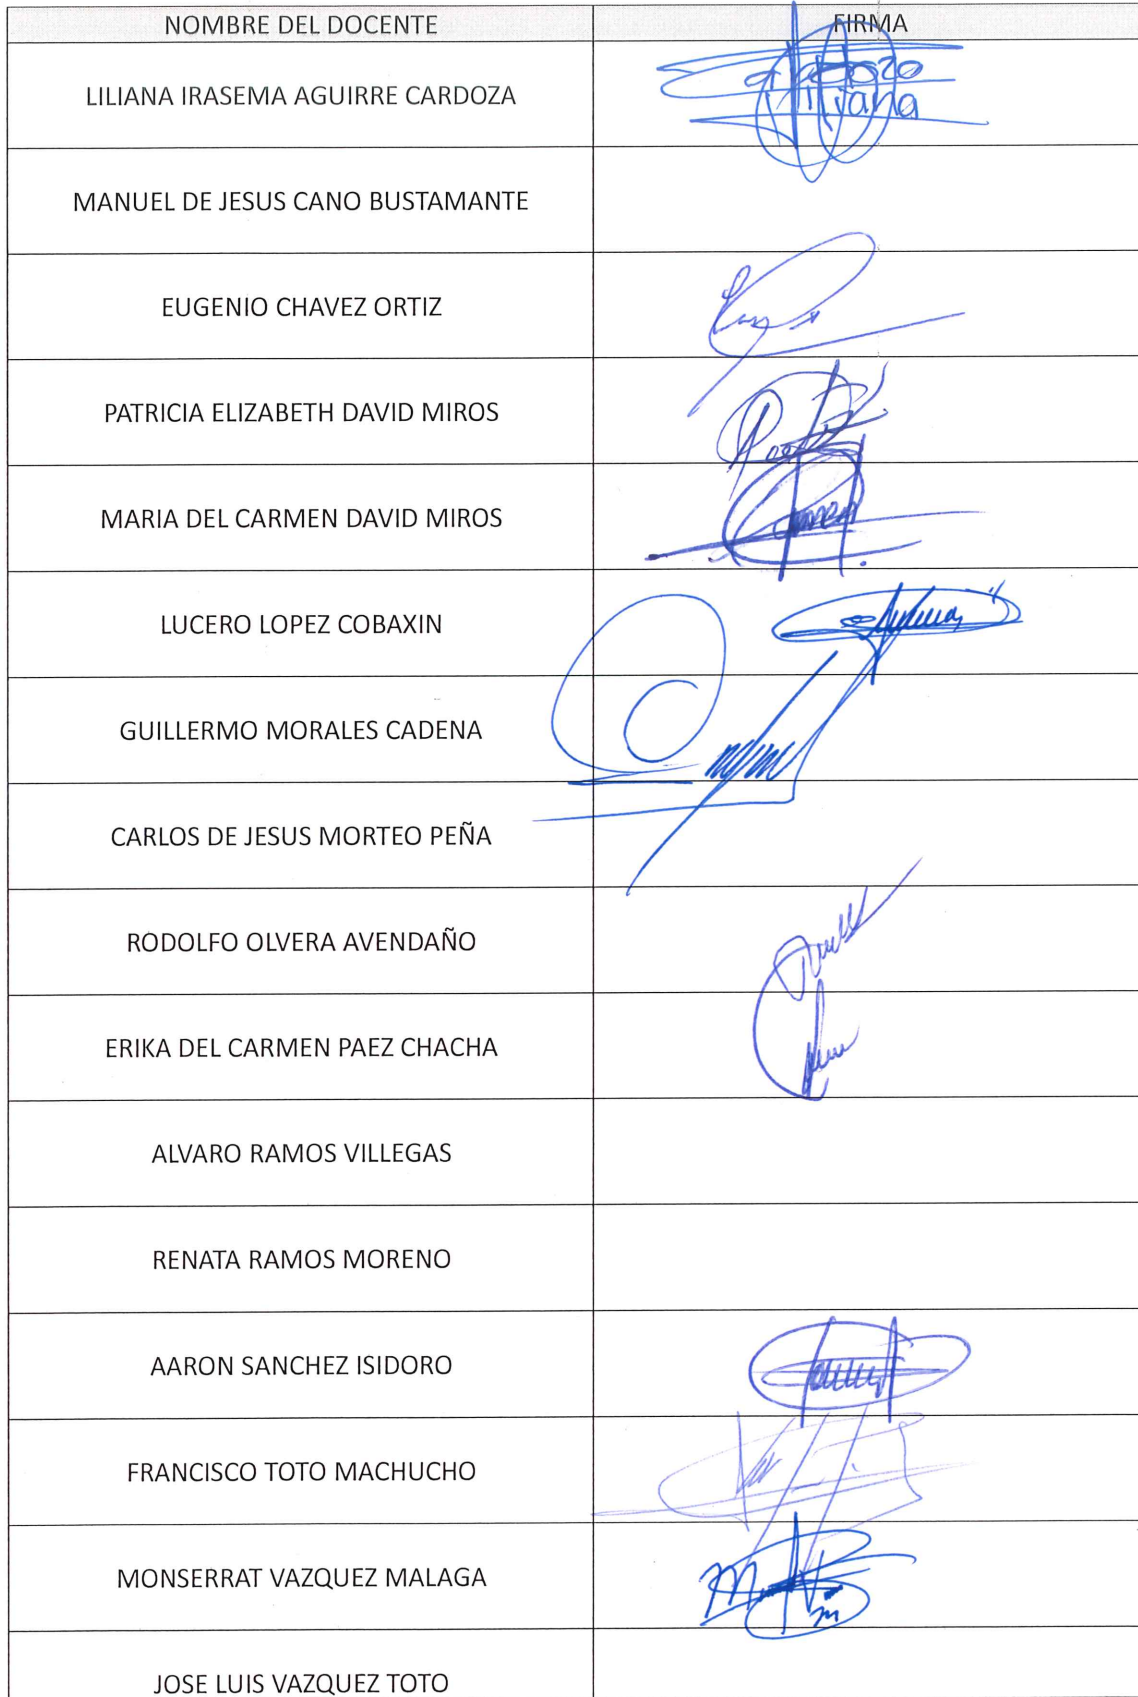 NOMBRE DEL DOCENTE FIRMA
LILIANA IRASEMA AGUIRRE CARDOZA
Liliana
MANUEL DE JESUS CANO BUSTAMANTE
EUGENIO CHAVEZ ORTIZ
PATRICIA ELIZABETH DAVID MIROS
MARIA DEL CARMEN DAVID MIROS
LUCERO LOPEZ COBAXIN
GUILLERMO MORALES CADENA
CARLOS DE JESUS MORTEO PEÑA
RODOLFO OLVERA AVENDAÑO
ERIKA DEL CARMEN PAEZ CHACHA
ALVARO RAMOS VILLEGAS
RENATA RAMOS MORENO
AARON SANCHEZ ISIDORO
FRANCISCO TOTO MACHUCHO
MONSERRAT VAZQUEZ MALAGA
JOSE LUIS VAZQUEZ TOTO